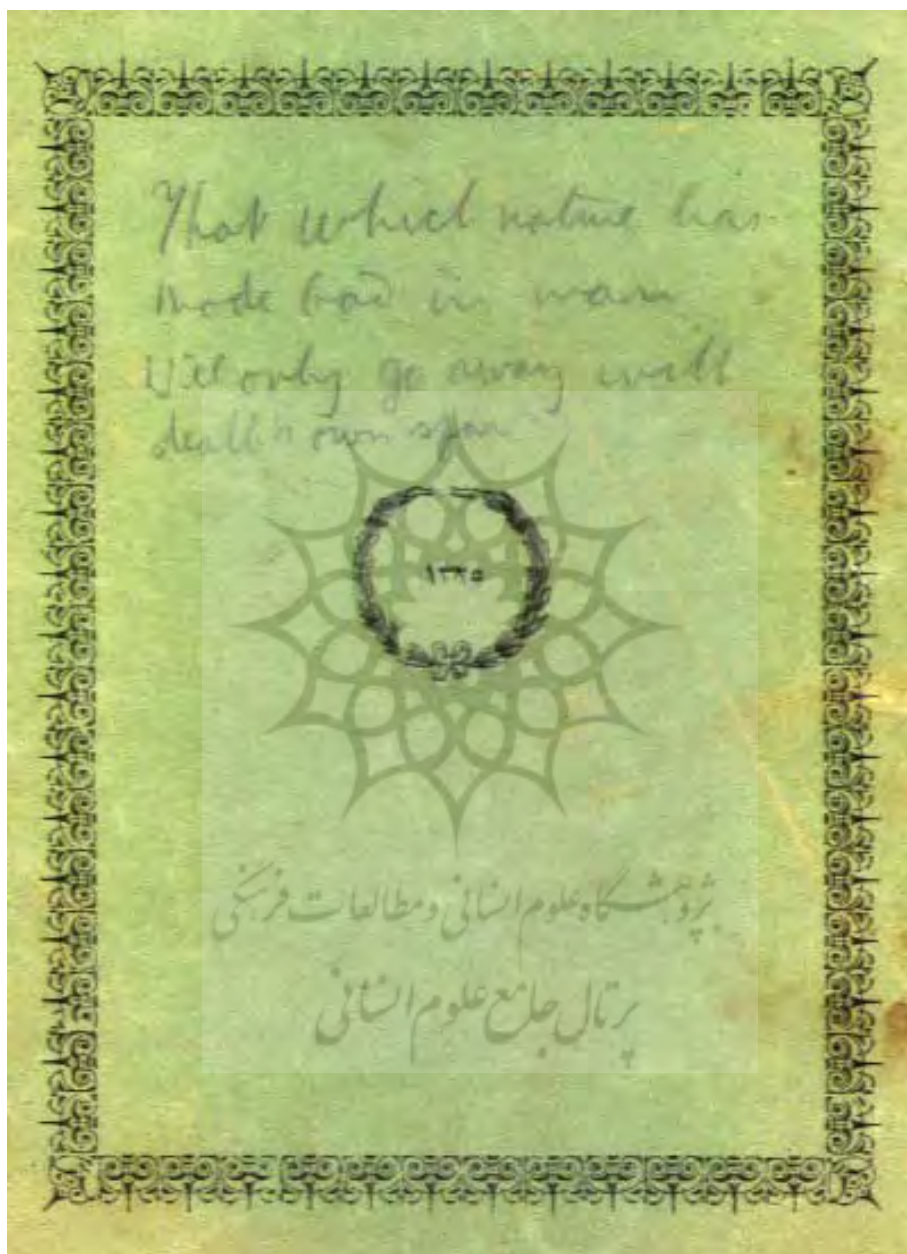 That which nature has
made bad in man
Will only go away with
death's own span
۱۳۲۵
پژوهشگاه علوم انسانی و مطالعات فرهنگی
پرتال جامع علوم انسانی